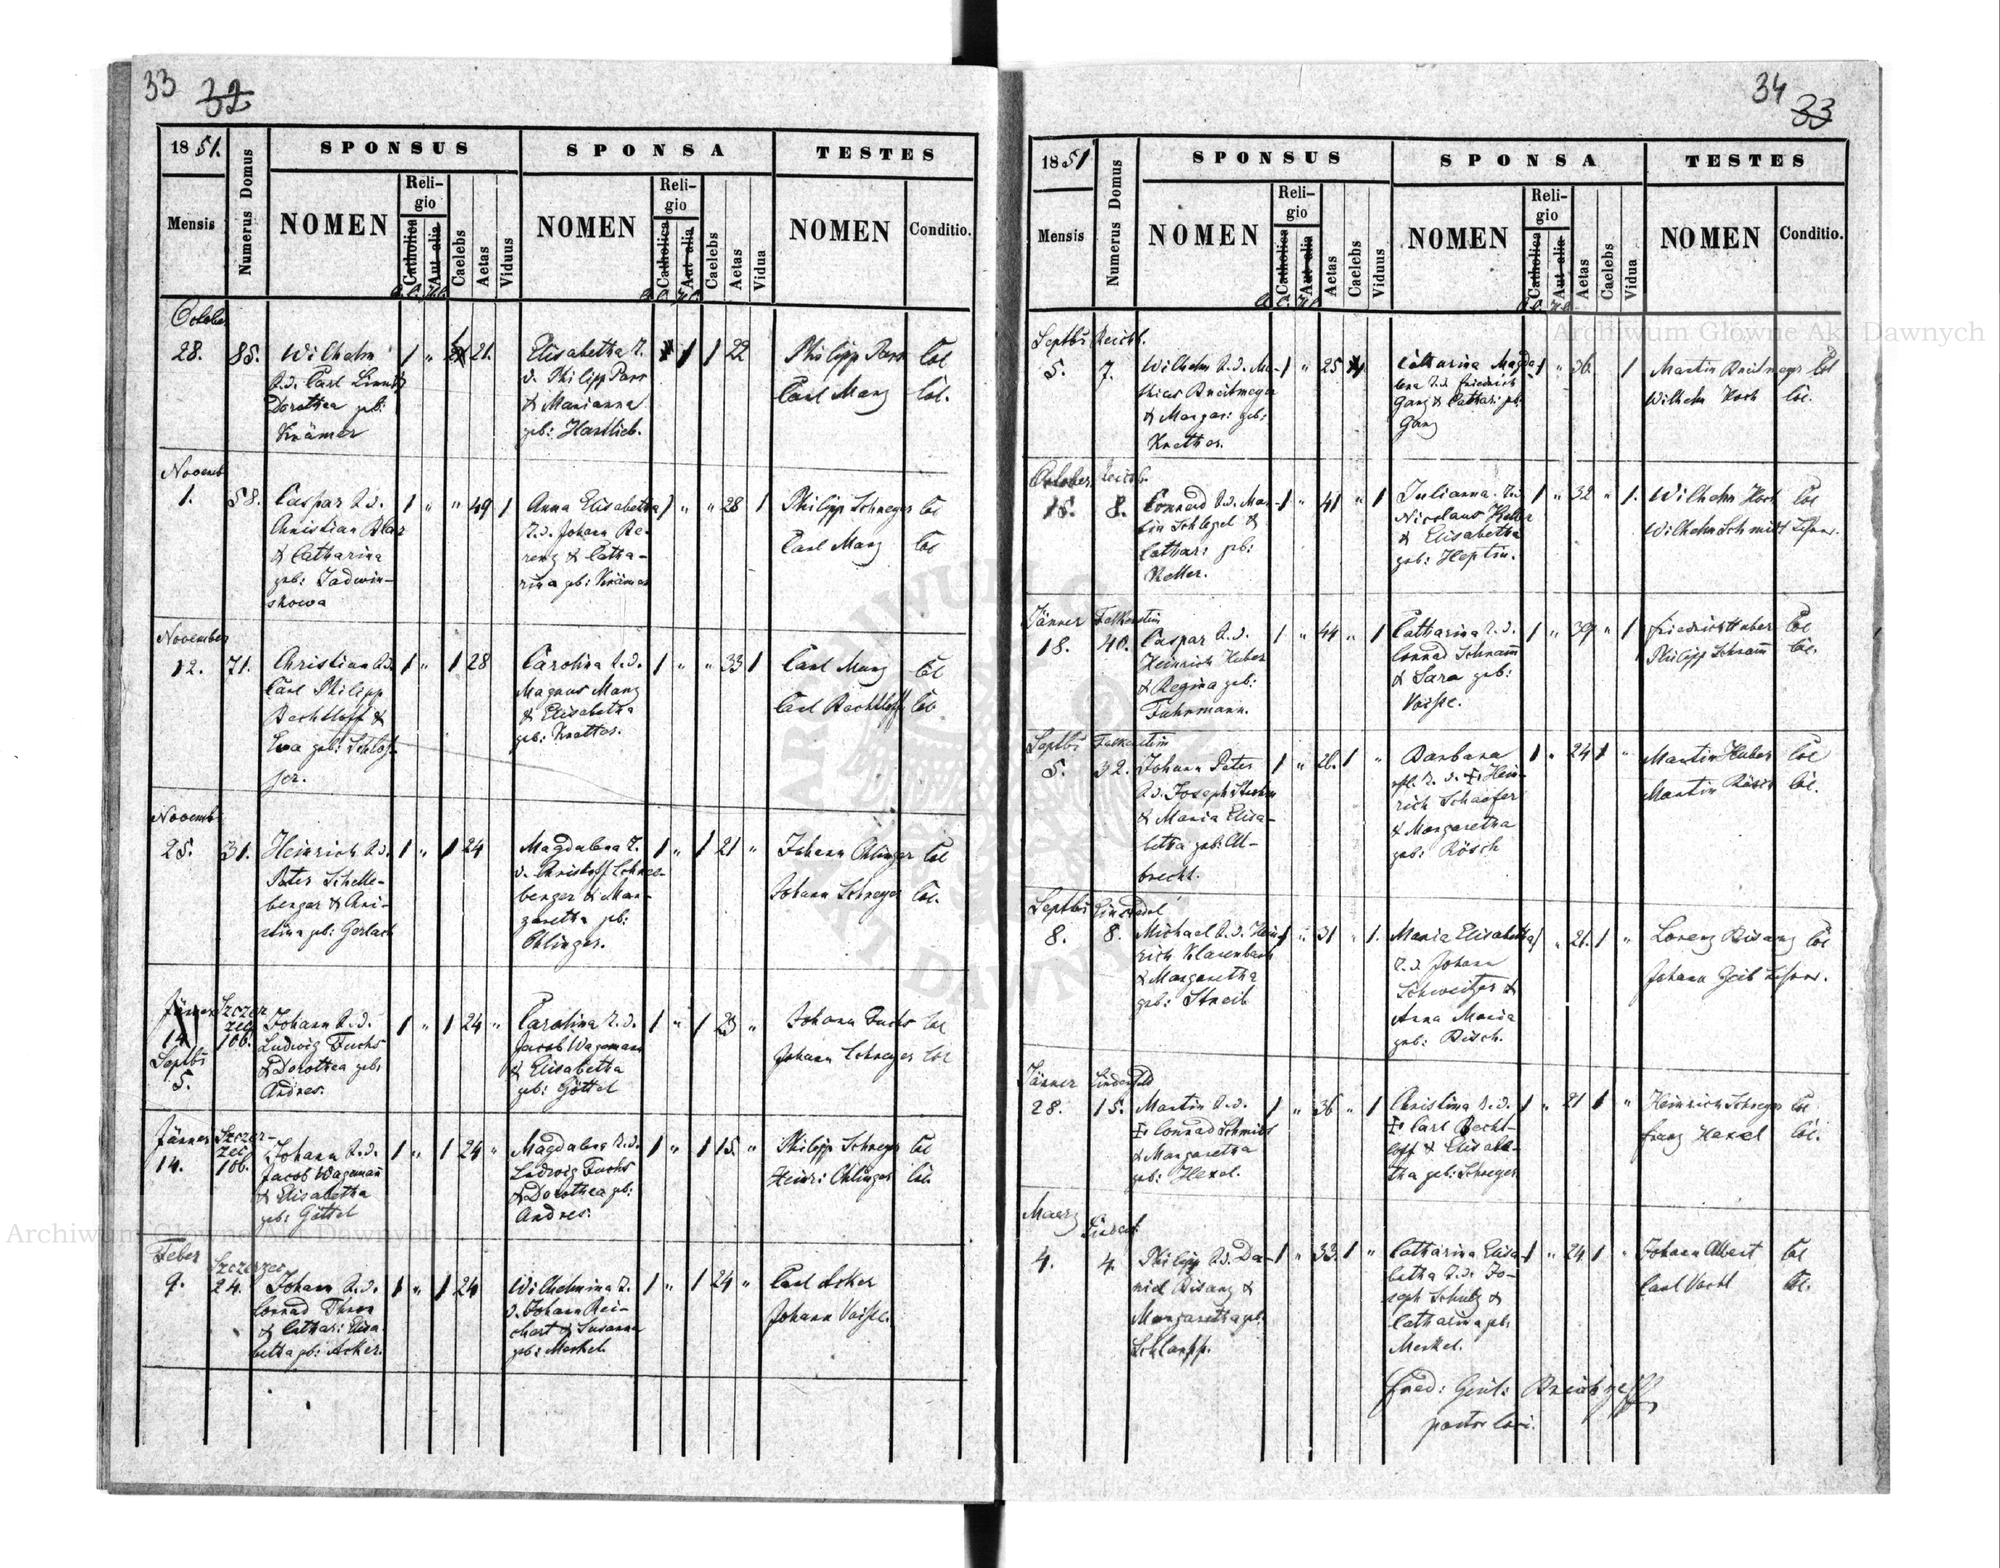 33 32
1851.
Numerus Domus
SPONSUS
SPONSA
TESTES
Mensis
NOMEN
Religio
Catholica
Aut alia
Caelebs
Aetas
Viduus
NOMEN
Religio
Catholica
Aut alia
Caelebs
Aetas
Vidua
NOMEN
Conditio.
October
28. 85. Wilhelm 1 " 21. Elisabetha T. 1 1 22 Philipp Parr Col
v. Philipp Parr Carl Manz Col.
Dorothea geb: & Marianna
Krämer geb: Hartlieb.
Novemb
1. 58. Caspar S.d. 1 " " 49 1 Anna Elisabetha 1 " " 28 1 Philipp Schneyer Col
Christian T.d. Johann Be-
& Catharina renz & Catha- Carl Manz Col
geb: Jadwin- rina geb: Krämer
skowa
November
12. 71. Christian S.d. 1 " 1 28 Carolina T.d. 1 " " 33 1 Carl Manz Col
Carl Philipp Magnus Manz
Bechtloff & & Elisabetha Carl Bechtloff Col
Eva geb: Schlos- geb: Knettes.
ser.
Novemb
25. 31. Heinrich S.d. 1 " 1 24 Magdalena T. 1 " 1 21 " Johann Ohlinger Col
Peter Schelle- v. Christoff Schnee-
berger & Chri- berger & Mar- Johann Schneyer Col.
stina geb: Gerlach garetha geb:
Ohlinger.
Jänner Szczer
14 zec 106. Johann S.d. 1 " 1 24 " Carolina T.d. 1 " 1 23 " Johann Fuchs Col
Septbr Ludwig Fuchs Jacob Wagemann
5. & Dorothea geb: & Elisabetha Johann Schneyer Col
Andres. geb: Göttel
Jänner Szczer-
14. zec 106. Johann S.d. 1 " 1 24 " Magdalena T.d. 1 " 1 15. " Philipp Schneyer Col
Jacob Wagemann Ludwig Fuchs Heinr: Ohlinger Col.
& Elisabetha & Dorothea geb:
geb: Göttel Andres.
Feber Szczerzec
9. 24. Johann S.d. 1 " 1 24 Wilhelmina T. 1 " 1 24 " Carl Acker
Conrad Thron v. Johann Rei- Johann Voisse.
& Cathar: Elisa- chert & Susanna
betha geb: Acker. geb: Merkel.
34 33
1851
Numerus Domus
SPONSUS
SPONSA
TESTES
Mensis
NOMEN
Religio
Catholica
Aut alia
Aetas
Caelebs
Viduus
NOMEN
Religio
Catholica
Aut alia
Aetas
Caelebs
Vidua
NOMEN
Conditio.
Septbr Reichb.
5. 7. Wilhelm S.d. Ma- 1 " 25 Catharina Magda- 1 " 36. 1 Martin Breitmeyer Col
thias Breitmeyer lena T.d. Friedrich Wilhelm Koch Col.
& Margar: geb: Ganz & Cathar: geb:
Knettes. Ganz
October Reichb.
15. 8. Connerd S.d. Mar- 1 " 41 " 1 Julianna T.d. 1 " 32 " 1. Wilhelm Koch Col
tin Schlegel & Nicolaus Keller Wilhelm Schmidt
Cathar: geb: & Elisabetha
Keller. geb: Heptin.
Jänner Falkenstein
18. 40. Caspar S.d. 1 " 44 " 1 Catharina T.d. 1 " 39 " 1 Friedrich Huber Col
Heinrich Huber Conrad Schramm Philipp Schramm Col.
& Regina geb: & Sara geb:
Fuhrmann. Voisse.
Septbr Falkenstein
5. 32. Johann Peter 1 " 26. 1 " Barbara 1 " 24 1 " Martin Huber Col
S.d. Joseph T.d. Hein- Martin Rösch Col.
& Maria Elisa- rich Schaefer
betha geb: Al- & Margaretha
brecht. geb: Rösch
Septbr Einsiedel
8. 8. Michael S.d. Hein- 1 " 31 " 1. Maria Elisabetha 1 " 21. 1 " Lorenz Bisanz Col
rich Klarenbach T.d. Johann Johann Zeib
& Margaretha Schweitzer &
geb: Streib Anna Maria
geb: Bisch.
Jänner Lindenfeld
28. 15. Martin S.d. 1 " 36 " 1 Christina T.d. 1 " 21 1 " Heinrich Schneyer Col
Conrad Schmidt Carl Becht- Franz Hexel Col.
& Margaretha loff & Elisabe-
geb: Hexel. tha geb: Schneyer
Maerz
4. 4. Philipp S.d. Da- 1 " 33. 1 " Catharina Elisa- 1 " 24 1 " Johann Albert Col
niel Bisanz & betha T.d. Jo- Carl Vocht Col.
Margaretha geb: seph Schulz &
Schlapp. Catharina geb:
Merkel.
pastor loci.
Archiwum Główne Akt Dawnych
Archiwum Główne Akt Dawnych